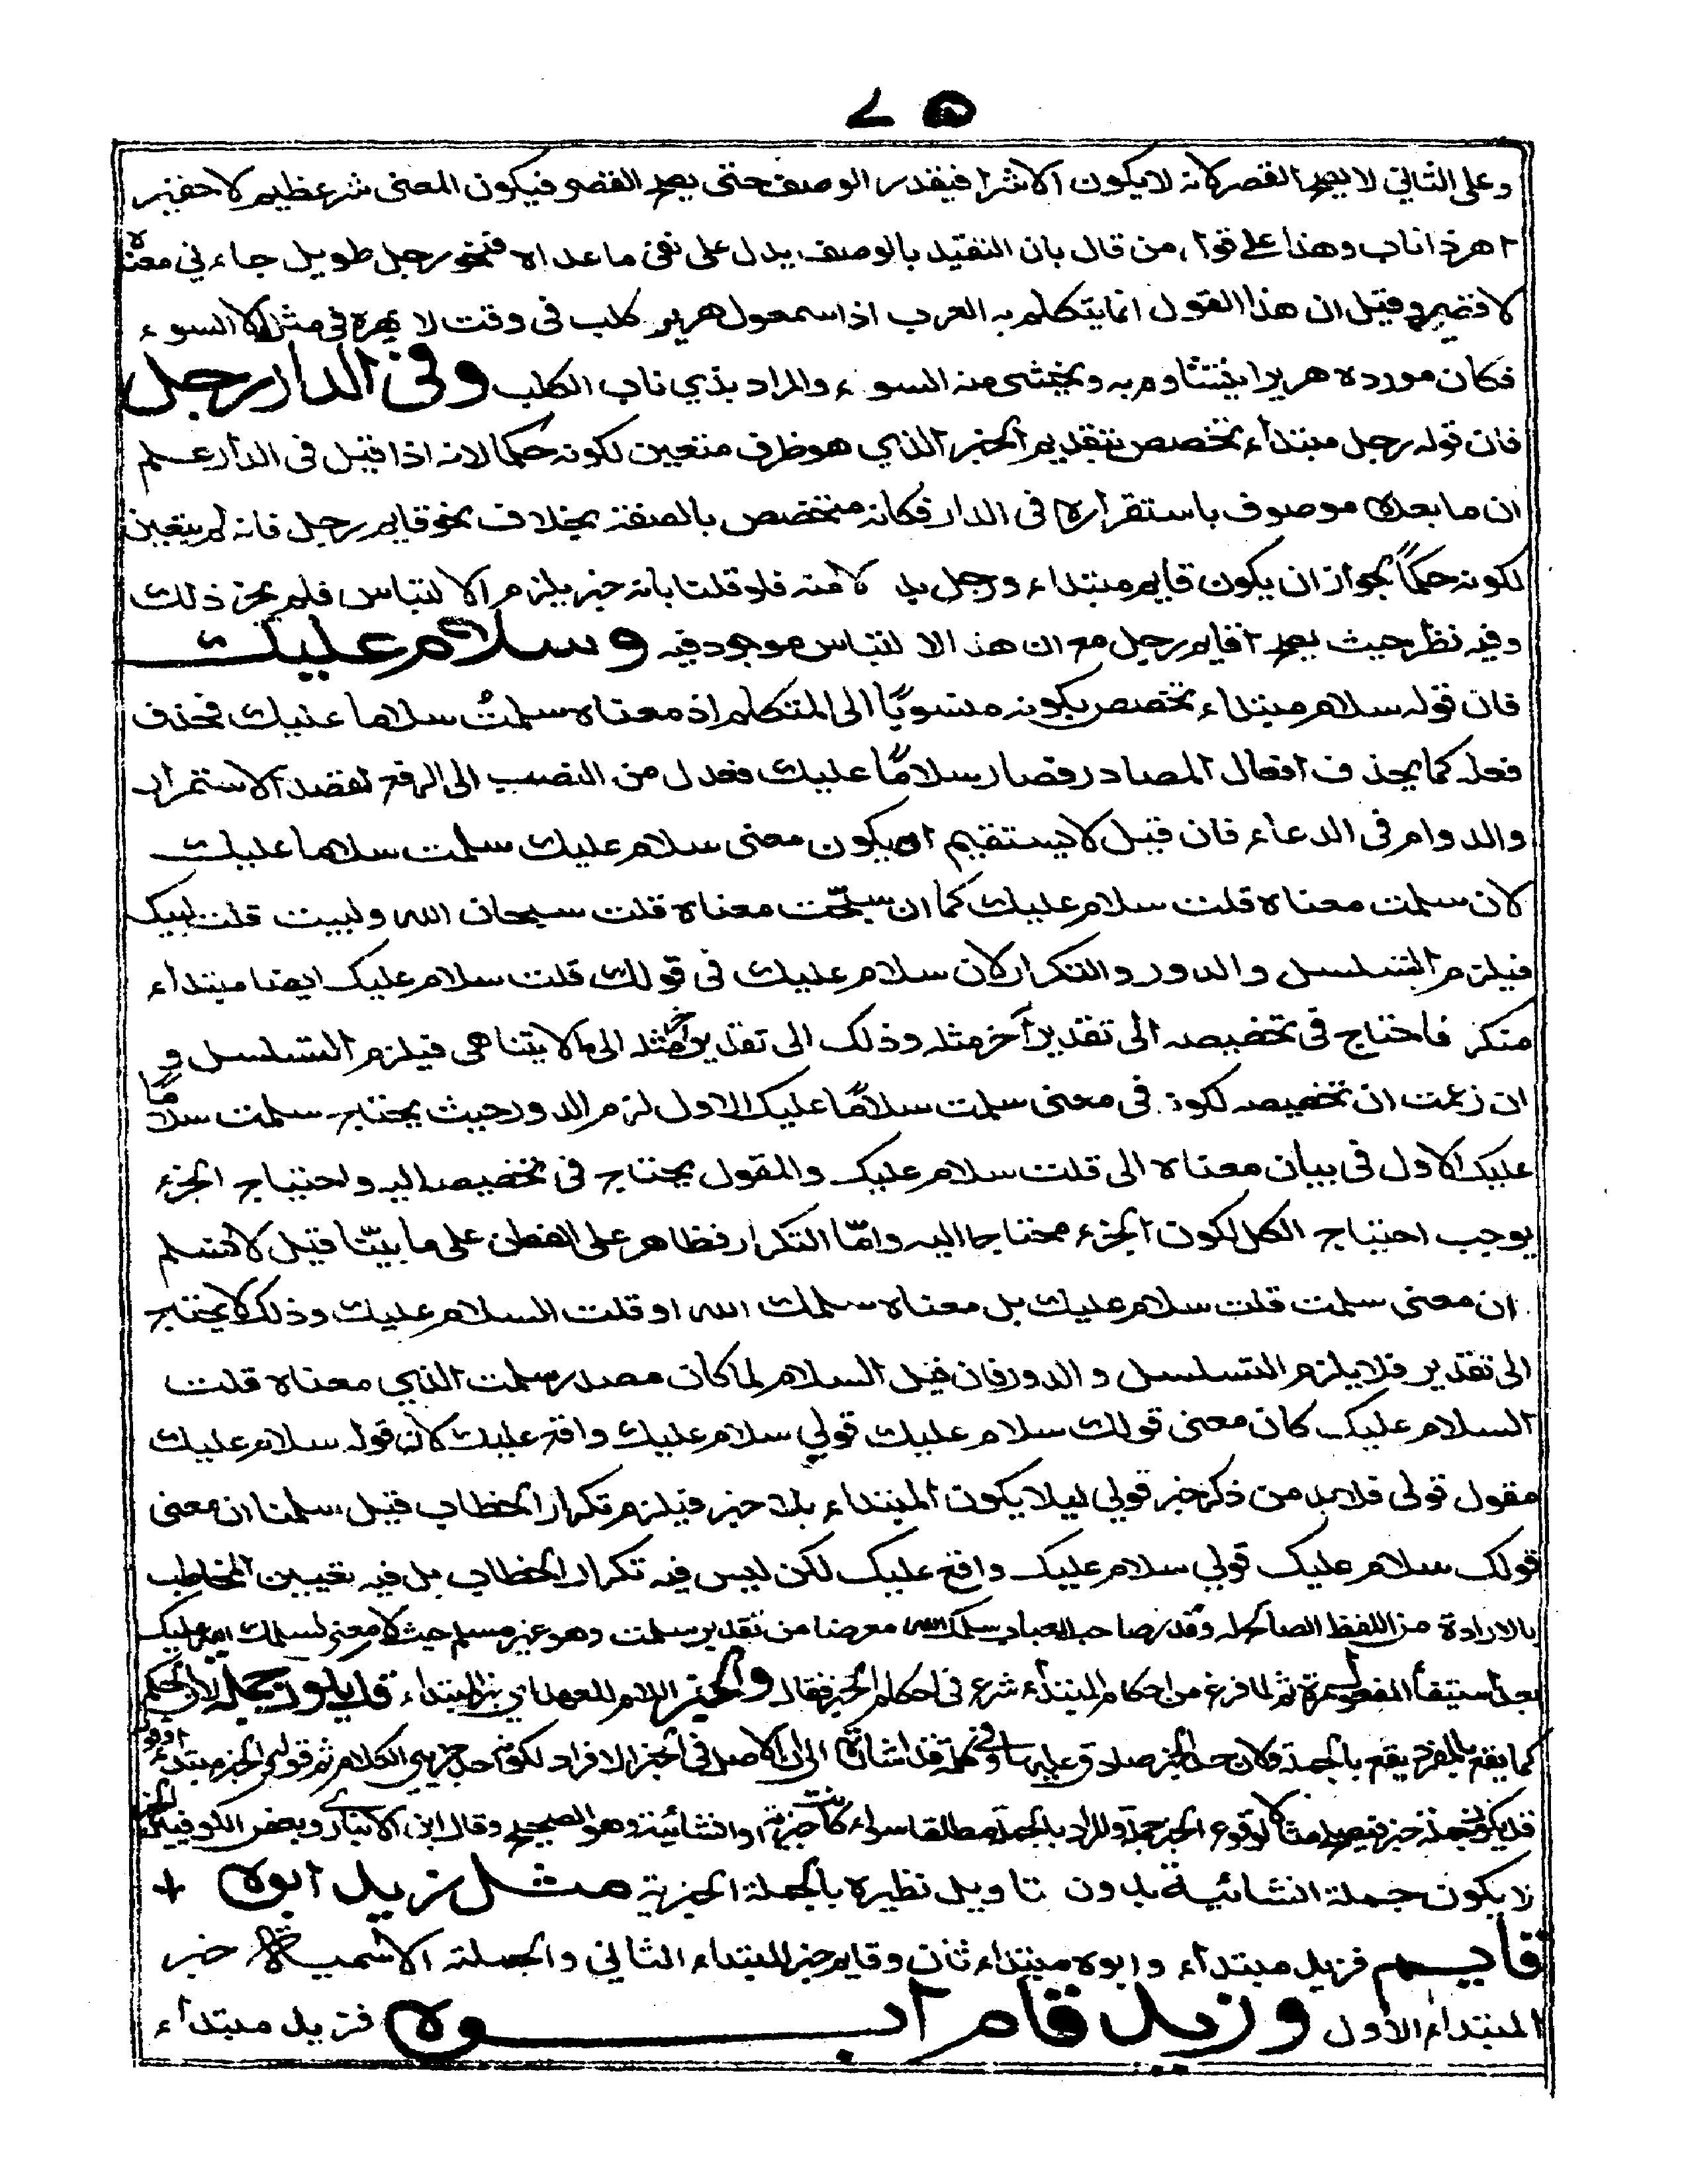 وعلى الثاني لا يصح القصر لانه لا يكون الا شرا فيقدر الوصف حتى يصح القصر فيكون المعنى شر عظيم لا حقير
اهر ذا ناب وهذا على قول من قال بان التقييد بالوصف يدل على نفى ما عداه فنحو رجل طويل جاءني معناه
لا قصير وقيل ان هذا القول انما يتكلم به العرب اذا سمعوا هرير كلب فى وقت لا يهره فى مثله الا لسوء
فكان مورده هريرا يتشاوم به ويخشى منه السوء والمراد بذي ناب الكلب وفى الدار رجل
فان قوله رجل مبتداء تخصص بتقديم الخبر الذي هو ظرف متعين لكونه حكما لانه اذا قيل فى الدار علم
ان ما بعده موصوف باستقراره فى الدار فكانه متخصص بالصفة بخلاف نحو قايم رجل فانه لم يتعين
لكونه حكماً لجواز ان يكون قايم مبتداء ورجل بدلا منه فلو قلنا بانه خبر يلزم الالتباس فلم يجز ذلك
وفيه نظر حيث يصح اقايم رجل مع ان هذا الالتباس موجود فيه وسلام عليك
فان قوله سلام مبتداء تخصص بكونه منسوبًا الى المتكلم اذ معناه سلمتُ سلاما عليك فحذف
فعله كما يحذف افعال المصادر فصار سلامًا عليك فعدل من النصب الى الرفع لقصد الاستمرار
والدوام فى الدعاء فان قيل لا يستقيم ان يكون معنى سلام عليك سلمت سلاما عليك
لان سلمت معناه قلت سلام عليك كما ان سبّحت معناه قلت سبحان الله ولبيت قلت لبيك
فيلزم التسلسل والدور والتكرار لان سلام عليك فى قولك قلت سلام عليك ايضا مبتداء
منكر فاحتاج فى تخصيصه الى تقدير آخر مثله وذلك الى تقدير آخر مثله الى ما لا يتناهى فيلزم التسلسل و
ان زعمت ان تخصيصه لكونه فى معنى سلمت سلامًا عليك الاول لزم الدور حيث يحتاج سلمت سلامًا
عليك الاول فى بيان معناه الى قلت سلام عليك والمقول يحتاج فى تخصيصه اليه واحتياج الجزء
يوجب احتياج الكل لكون الجزء محتاجا اليه وامّا التكرار فظاهر على الفطن على ما بيّنا قيل لا نسلم
ان معنى سلمت قلت سلام عليك بل معناه سلمك الله او قلت السلام عليك وذلك لا يحتاج
الى تقدير فلا يلزم التسلسل والدور فان قيل السلام لما كان مصدر سلمت الذي معناه قلت
السلام عليك كان معنى قولك سلام عليك قولي سلام عليك واقع عليك لان قوله سلام عليك
مقول قولى فلا بد من ذكر خبر قولي ليلا يكون المبتداء بلا خبر فيلزم تكرار الخطاب قيل سلمنا ان معنى
قولك سلام عليك قولي سلام عليك واقع عليك لكن ليس فيه تكرار الخطاب بل فيه تعيين المخاطب
بالارادة من اللفظ الصالح له وقدر صاحب العباب سلمك الله معرضا من تقدير سلمت وهو غير مسلم حيث لا معنى لسلمك الله عليك
بعد استيفاء المفعول مرة ثم لما فرغ من احكام المبتداء شرع فى احكام الخبر فقال والخبر اللام للعهد اي خبر المبتداء قد يكون جملة لان الحكم
كما يقع بالمفرد يقع بالجملة ولان حد الخبر صادق عليها وفى كلمة قد اشارة الى ان الاصل فى الخبر الافراد لكونه احد جزئي الكلام ثم قوله الخبر مبتداء
قد يكون جملة خبره فيصير مثالا لوقوع الخبر جملة والمراد بالجملة مطلقا سواء كانت خبرية او انشائية وهو الصحيح وقال ابن الانباري وبعض الكوفيين
لا يكون جملة انشائية بدون تاويل نظيره بالجملة الخبرية مثل زيد ابوه +
قايم فزيد مبتداء وابوه مبتداء ثان وقايم خبر المبتداء الثاني والجملة الاسمية خبر
المبتداء الاول وزيد قام ابوه فزيد مبتداء